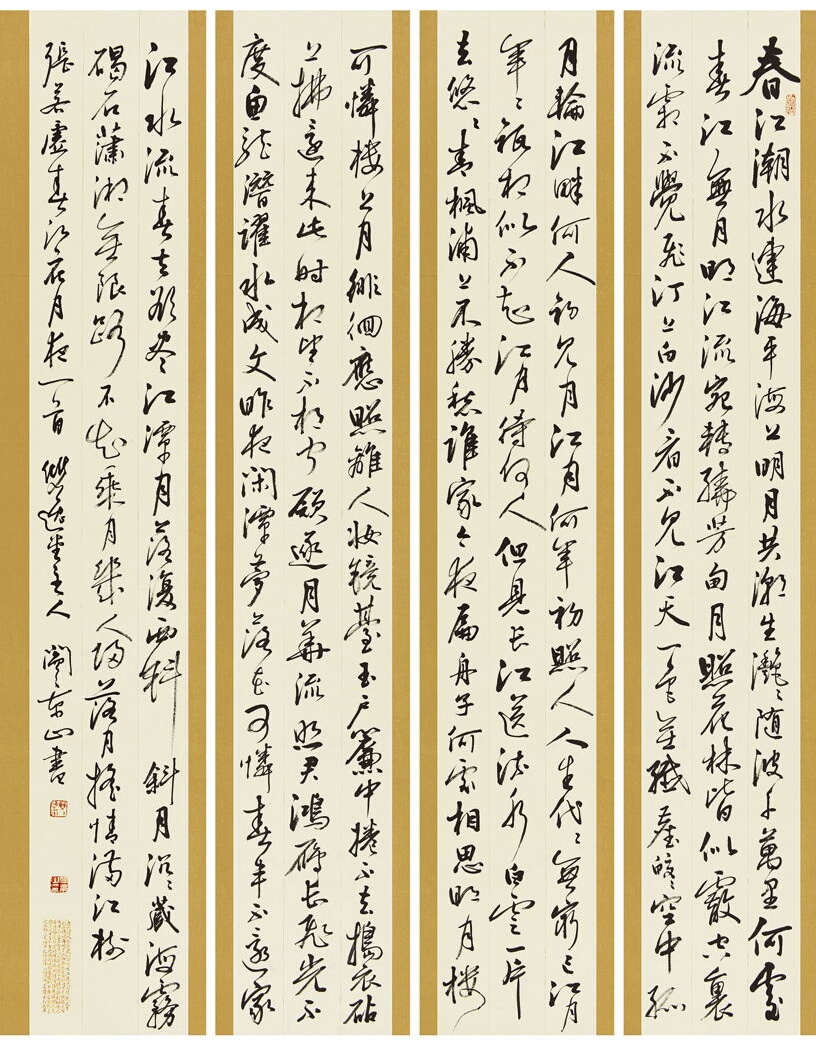 春江潮水連海平海上明月共潮生灩〻随波千萬里何處
春江無月明江流宛轉繞芳甸月照花林皆似霰空裏
流霜不覺飛汀上白沙看不見江天一色無纖塵皎〻空中孤
月輪江畔何人初見月江月何年初照人人生代〻無窮已江月
年〻祗相似不知江月待何人但見長江送流水白雲一片
去悠〻青楓浦上不勝愁誰家今夜扁舟子何處相思明月樓
可憐樓上月徘徊應照離人妝鏡臺玉戶簾中捲不去搗衣砧
上拂還來此時相望不相聞願逐月華流照君鴻雁長飛光不
度魚龍潛躍水成文昨夜閑潭夢落花可憐春半不還家
江水流春去欲盡江潭月落復西斜 斜月沉〻藏海霧
碣石瀟湘無限路不知乘月幾人歸落月搖情滿江樹
張若虛春江花月夜一首 逸堂主人 東山書